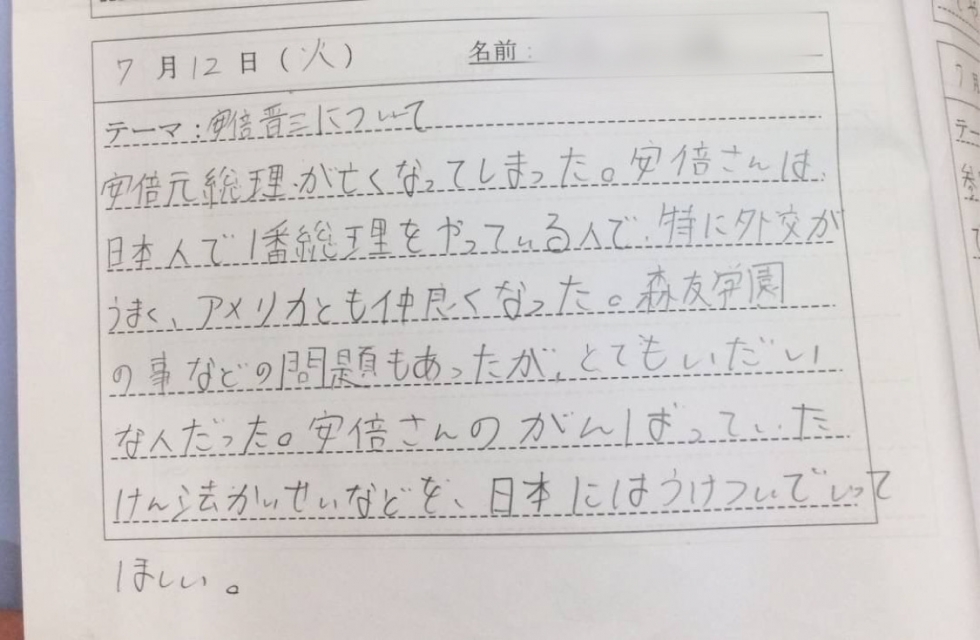 7月12日(火) 名前:
テーマ:安倍晋三について
安倍元総理が亡くなってしまった。安倍さんは、
日本人で1番総理をやっている人で、特に外交が
うまく、アメリカとも仲良くなった。森友学園
の事などの問題もあったが、とてもいだい
な人だった。安倍さんのがんばっていた
けん法かいせいなどを、日本にはうけついでいって
ほしい。